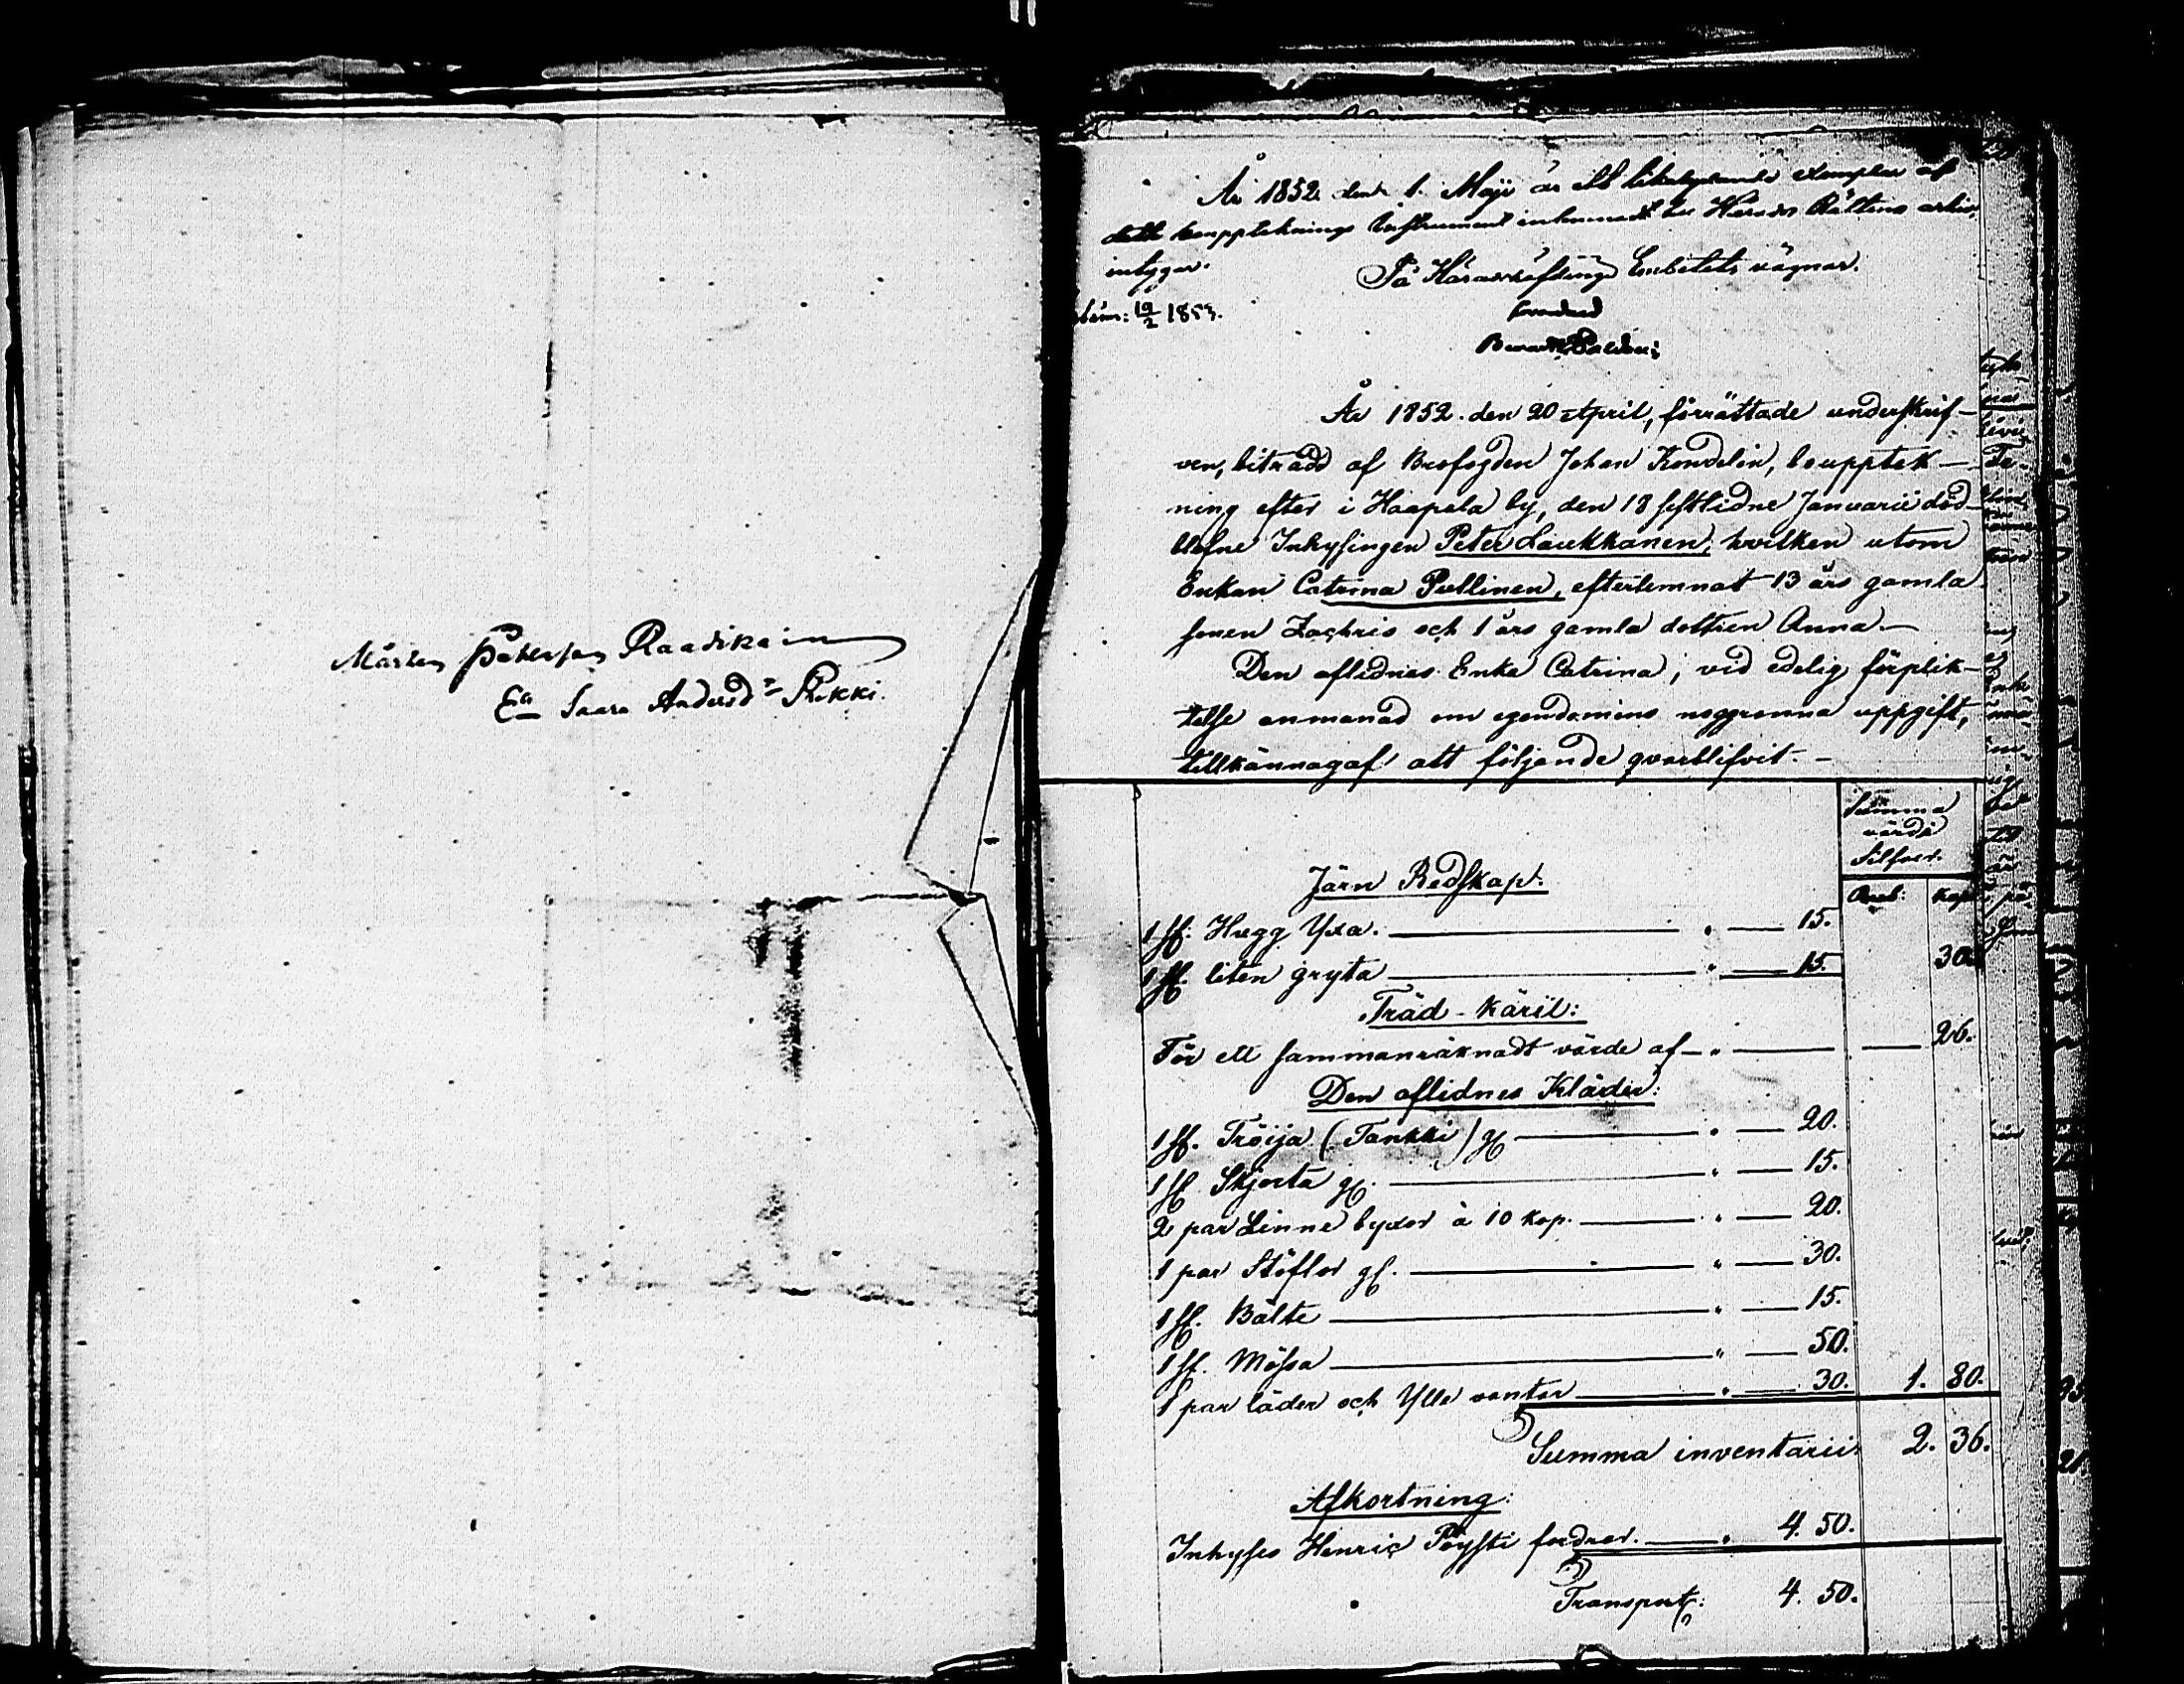 Mårten Petersson Raadikain
Ea Saara Andersd:r Pukki.
År 1852 den 1. Maji är ett likalydande exemplar af
detta bouppteknings instrument inlemnadt till Härads Rättens arkiv,
intygar.
På Häradshöfdinge Embetets vägnar.
19/2 1853.
År 1852. den 20 April, förrättade underskrif-
ven, biträdd af Brofogden Johan Kondelin, bouppteck-
ning efter i Haapala by, den 18 sistlidne Januarii död-
blefne Inhysingen Peter Laukkanen, hvilken utom
Enkan Catrina Pullinen, efterlemnat 13 års gamla
sonen Zachris och 1 års gamla dottren Anna.—
Den aflidnas Enka Catrina, vid edelig förplik-
telse anmanad om egendomens noggranna uppgift,
tillkännagaf att följande qvarblifvit.—
Summa
värde
Silfver.
Rub: kop
Järn Redskap.
1 st. Hugg Yxa. — " — 15.
1 st. liten gryta — " — 15. 30.
Träd-käril:
För ett sammanräknadt värde af — " — 26.
Den aflidnes Kläder:
1 st. Tröija (Tankki) gl — " — 20.
1 st Skjorta gl. — " — 15.
2 par Linne byxor à 10 kop. — " — 20.
1 par Stöflor gl. — " — 30.
1 st. Bälte — " — 15.
1 st. Mössa — " — 50.
1 par läder och Ylle vantar — " — 30. 1. 80.
Summa inventarii. 2. 36.
Afkortning:
Inhyses Henric Pöysti fordrar. — " 4. 50.
Transport: 4. 50.